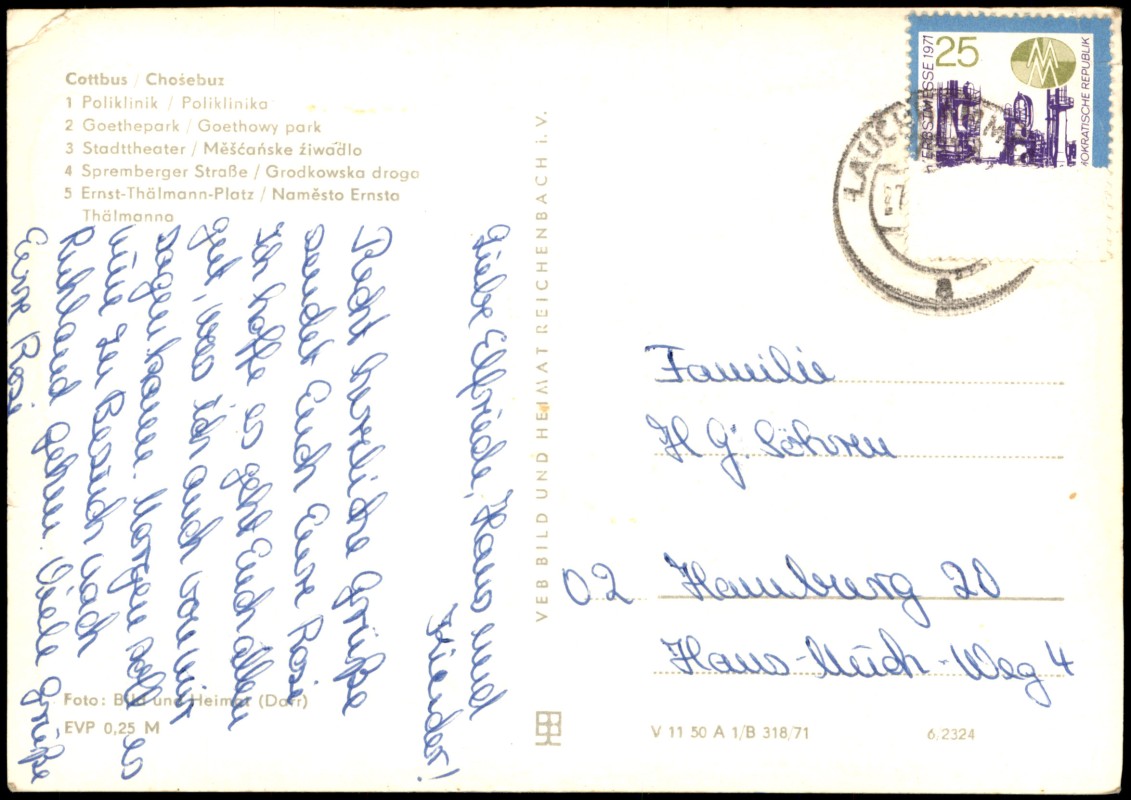 Cottbus / Chośebuz
1 Poliklinik / Poliklinika
2 Goethepark / Goethowy park
3 Stadttheater / Měšćańske źiwadło
4 Spremberger Straße / Grodkowska droga
5 Ernst-Thälmann-Platz / Naměsto Ernsta
Thälmanna
Liebe Elfriede, Hans und
Kinder!
Recht herzliche Grüße
sendet Euch Eure Rosi
Ich hoffe es geht Euch allen
gut, was ich auch von mir
sagen kann. Morgen soll es
zu Besuch nach
Ruhland gehen. Viele Grüße
Eure Rosi
Foto: Bild und Heimat (Darr)
EVP 0,25 M
VEB BILD UND HEIMAT REICHENBACH i. V.
25
HERBSTMESSE 1971
MOKRATISCHE REPUBLIK
MM
LAUCHHAMM
a
Familie
H G. Söhren
02 Hamburg 20
Hans-Much-Weg 4
V 11 50 A 1/B 318/71
6,2324